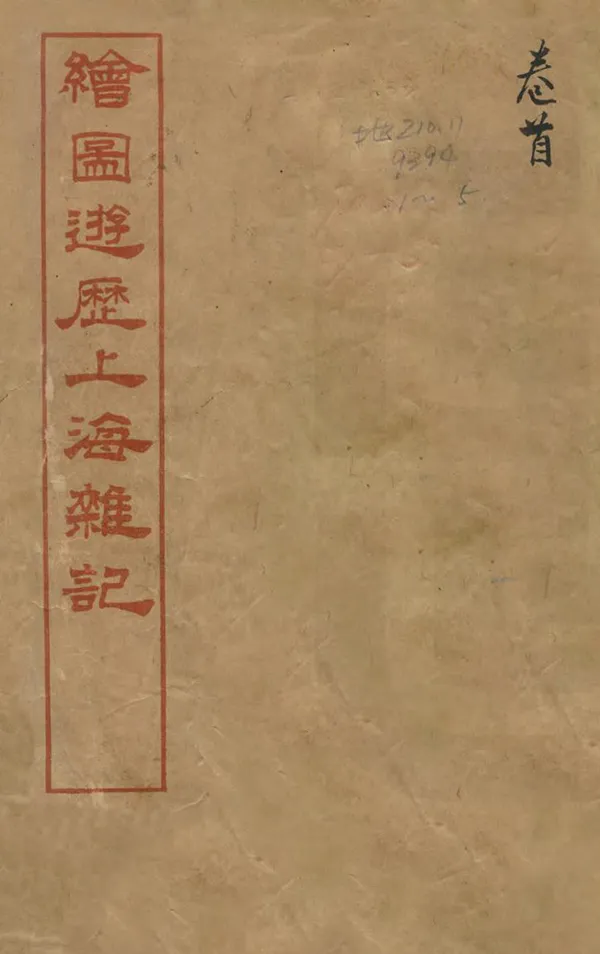 卷首
地210.11
9394
繪圖遊歷上海雜記